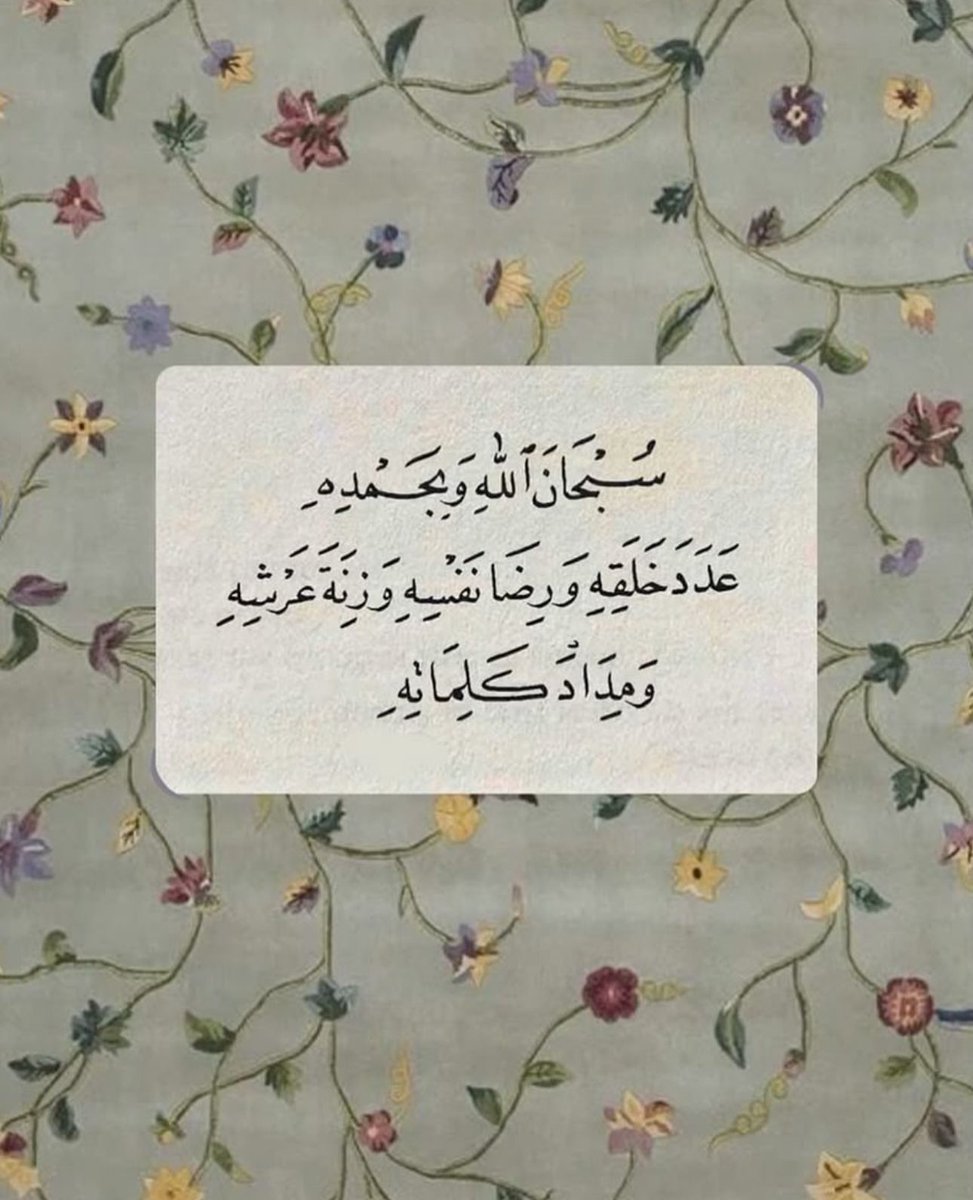 سُبْحَانَ ٱللَّهِ وَبِحَمْدِهِ
عَدَدَ خَلَقِهِ وَرِضَا نَفْسِهِ وَزِنَةَ عَرْشِهِ
وَمِدَادَ كَلِمَاتِهِ